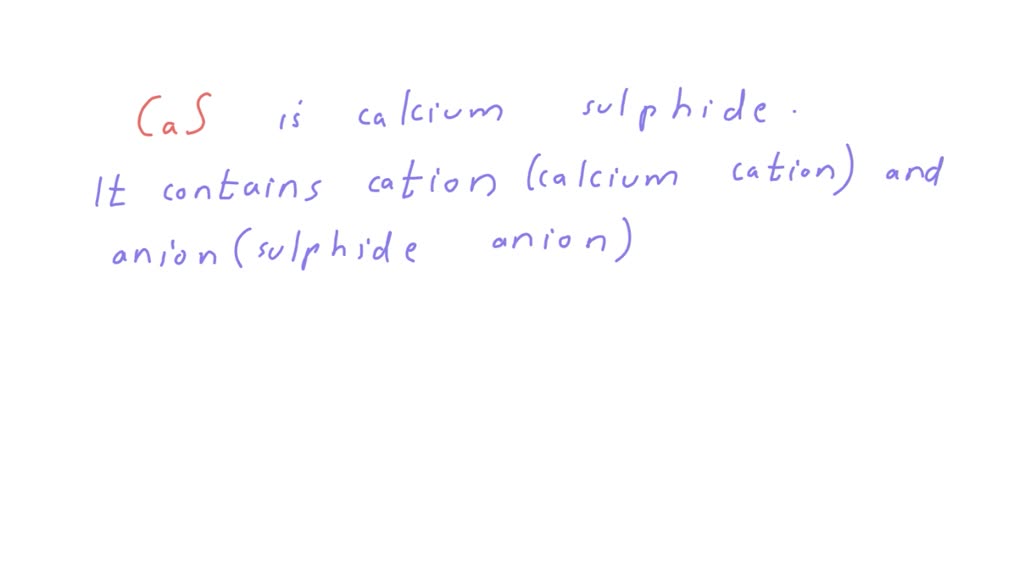 CaS is calcium sulphide.
It contains cation (calcium cation) and
anion (sulphide anion)